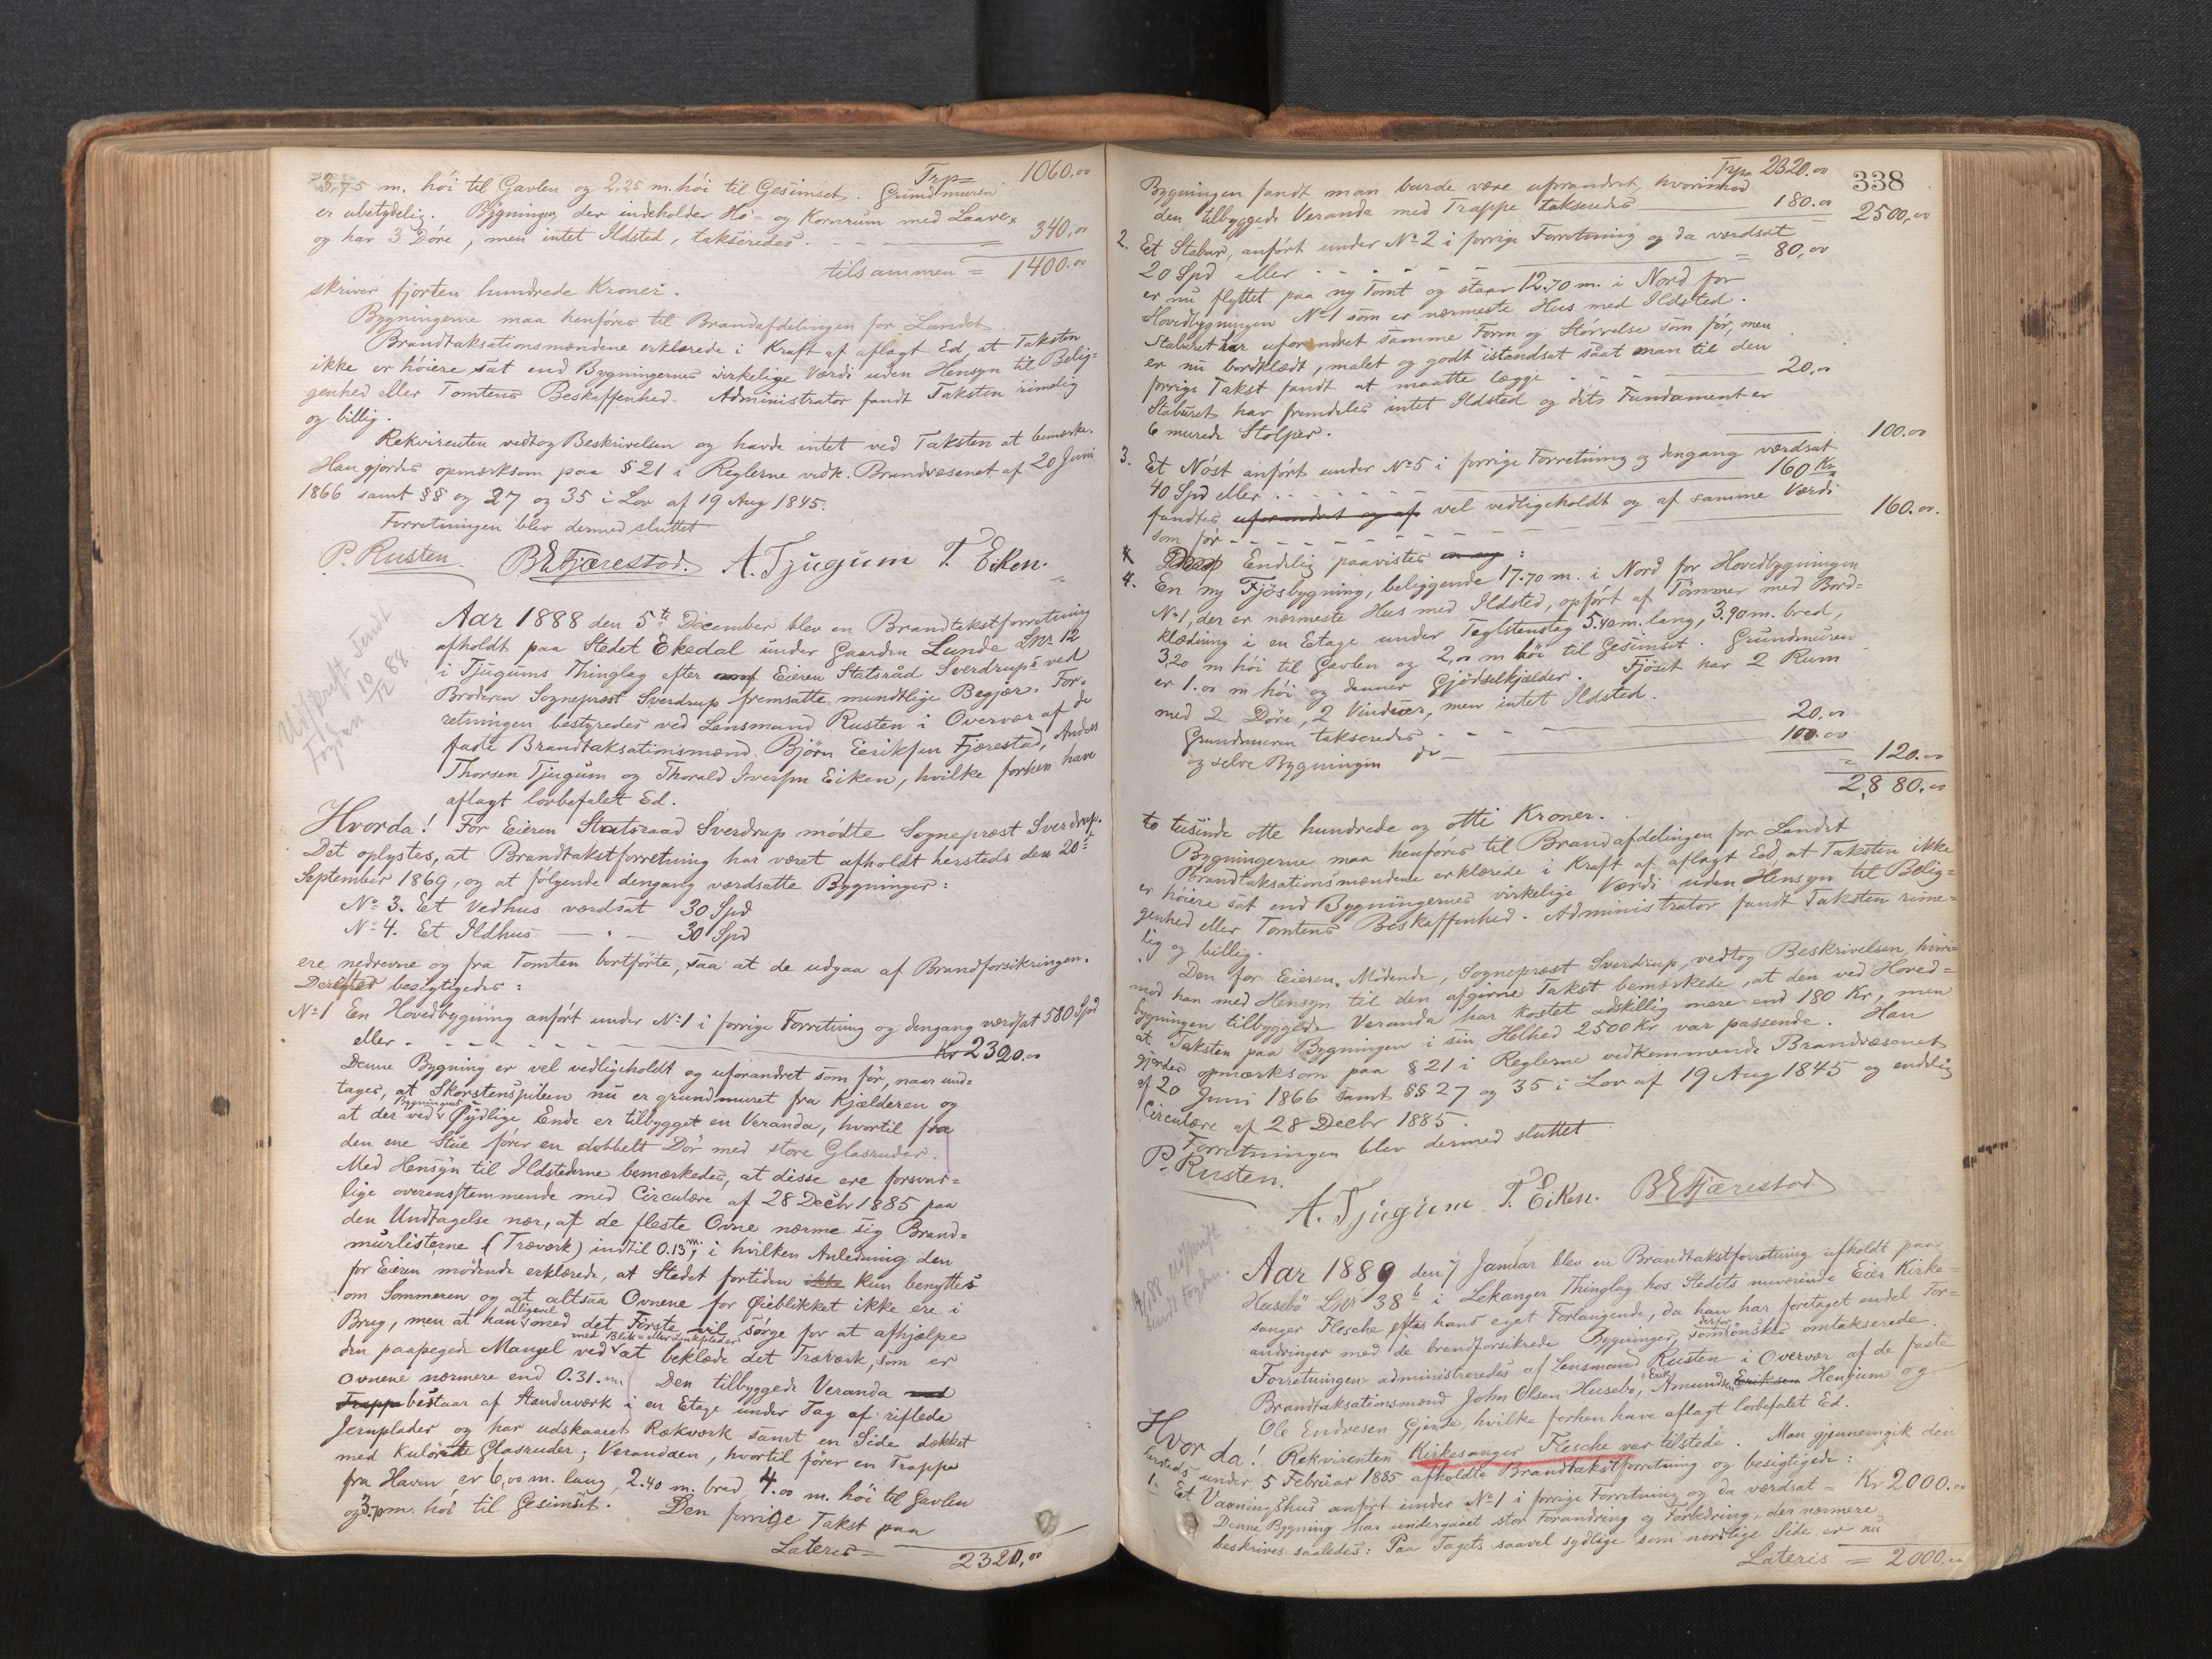 Trp= 1060.00
3,75 m. höi til Gavlen og 2,25 m. höi til Gesimset. Grundmuren
er ubetydelig. Bygningen, der indeholder Hö- og Kornrum med Laave
og har 3 Döre, men intet Ildsted, takseredes. - - = 340,00
tilsammen = 1400.00
skriver fjorten hundrede Kroner.
Bygningerne maa henföres til Brandafdelingen for Landet.
Brandtaksationsmændene erklærede i Kraft af aflagt Ed, at Taksten
ikke er höiere sat end Bygningernes virkelige Værdi uden Hensyn til Belig=
genhed eller Tomtens Beskaffenhed. Administrator fandt Taksten rimelig
og billig.
Rekvirenten vedtog Beskrivelsen og havde intet ved Taksten at bemærke.
Han gjordes opmærksom paa § 21 i Reglerne vedk. Brandvæsenet af 20 Juni
1866 samt §§ og 27 og 35 i Lov af 19 Aug 1845.
Forretningen blev dermed sluttet
P. Rusten. B E Fjærestad. A. Tjugum T. Eiken.
Udskrift sendt
Fogden 10/12 88.
Aar 1888 den 5te December blev en Brandtakstforretning
afholdt paa Stedet Ekedal under Gaarden Lunde Lnr 12
i Tjugums Thinglag efter Eieren Statsråd Sverdrups ved
Broderen Sogneprest Sverdrup fremsatte mundtlige Begjær. For=
retningen bestyredes ved Lensmand Rusten i Overvær af de
faste Brandtaksationsmænd Björn Eeriksen Fjærestad, Anders
Thorsen Tjugum og Thorald Iversen Eiken, hvilke forhen have
aflagt lovbefalet Ed.
Hvorda! For Eieren Statsraad Sverdrup mödte Sogneprest Sverdrup.
Det oplystes, at Brandtakstforretning har været afholdt hersteds den 20de
September 1869, og at fölgende dengang værdsatte Bygninger:
No 3. Et Vedhus værdsat 30 Spd
No 4. Et Ildhus — " — 30 Spd
ere nedrevne og fra Tomten bortförte, saa at de udgaa af Brandforsikringen.
Derefter besigtigedes:
No 1 En Hovedbygning anfört under No 1 i forrige Forretning og dengang værdsat 580 Spd
eller - - - - - Kr 2320.00
Denne Bygning er vel vedligeholdt og uforandret som för, naar und=
tages, at Skorstenspiben nu er grundmuret fra Kjælderen og
at der ved Bygningens sydlige Ende er tilbygget en Veranda, hvortil fra
den ene Stue förer en dobbelt Dör med store Glasruder.
Med Hensyn til Ildstederne bemærkedes, at disse ere forsvar=
lige overensstemmende med Circulære af 28 Decbr 1885 paa
den Undtagelse nær, at de fleste Ovne nærme sig Brand=
murlisterne (Træværk) indtil 0.13 m.; i hvilken Anledning den
for Eieren mödende erklærede, at Stedet fortiden ikke kun benyttes
om Sommeren og at altsaa Ovnene for Øieblikket ikke ere i
Brug, men at han alligevel med det Förste vil sörge for at afhjælpe
den paapegede Mangel ved med Blik- eller Zinkplader at beklæde det Træværk, som er
Ovnene nærmere end 0.31. m. Den tilbyggede Veranda med
Trappe bestaar af Standerværk i en Etage under Tag af riflede
Jernplader og har udskaaret Rækværk samt en Side dækket
med kulörte Glasruder; Verandaen, hvortil förer en Trappe
fra Haven, er 6,00 m. lang, 2.40 m. bred, 4.00 m. höi til Gavlen
og 3,70 m. höi til Gesimset. Den forrige Takst paa
Lateris = 2320,00
338
Trp= 2320.00
Bygningen fandt man burde være uforandret, hvorimod
den tilbyggede Veranda med Trappe takseredes — 180.00 2500,00
2. Et Stabur, anfört under No 2 i forrige Forretning og da værdsat
20 Spd eller - - - - = 80,00
er nu flyttet paa ny Tomt og staar 12.70 m. i Nord for
Hovedbygningen No 1 som er nærmeste Hus med Ildsted.
Staburet har uforandret samme Form og Störrelse som för, men
er nu bordklædt, malet og godt istandsat saat man til den
forrige Takst fandt at maatte lægge - - - 20,00
Staburet har fremdeles intet Ildsted og dets Fundament er
6 murede Stolper. 100.00
3. Et Nöst anfört under No 5 i forrige Forretning og dengang værdsat
40 Spd eller - - - - 160 Kr
fandtes uforandret og af vel vedligeholdt og af samme Værdi
som för - - - - - 160.00.
Endelig paavistes en ny:
4. En ny Fjösbygning, beliggende 17.70 m. i Nord for Hovedbygningen
No 1, der er nærmeste Hus med Ildsted, opfört af Tömmer med Bord=
klædning i en Etage under Teglstenstag 5.40 m. lang, 3.90 m. bred,
3,20 m höi til Gavlen og 2,00 m höi til Gesimset. Grundmuren
er 1.00 m höi og danner Gjödselkjælder. Fjöset har 2 Rum
med 2 Döre, 2 Vinduer, men intet Ildsted.
Grundmuren takseredes - - - 20.00
og selve Bygningen do — 100.00
= 120.00
2,880.00
to tusinde otte hundrede og otti Kroner.
Bygningerne maa henföres til Brandafdelingen for Landet
Brandtaksationsmændene erklærede i Kraft af aflagt Eed, at Taksten ikke
er höiere sat end Bygningernes virkelige Værdi uden Hensyn til Belig=
genhed eller Tomtens Beskaffenhed. Administrator fandt Taksten rime=
lig og billig.
Den for Eieren Mödende, Sogneprest Sverdrup, vedtog Beskrivelsen, hvori=
mod han med Hensyn til den afgivne Takst bemærkede, at den ved Hoved=
bygningen tilbyggede Veranda har kostet adskillig mere end 180 Kr, men
at Taksten paa Bygningen i sin Helhed 2500 Kr var passende. Han
gjordes opmærksom paa § 21 i Reglerne vedkommende Brandvæsenet
af 20 Juni 1866 samt §§ 27 og 35 i Lov af 19 Aug 1845 og endelig
Circulære af 28 Decbr 1885.
Forretningen blev dermed sluttet
P. Rusten.
A. Tjugum T. Eiken. B. E Fjærestad
Udskrift
sendt Fogden.
Aar 1889 den 7 Januar blev en Brandtakstforretning afholdt paa
Husebö Lnr 38 i Lekanger Thinglag hos Stedets nuværende Eier Kirke=
sanger Flesche efter hans eget Forlangende, da han har foretaget endel For=
andringer med de brandforsikrede Bygninger, som derfor önskes omtakserede.
Forretningen administreredes af Lensmand Rusten i Overvær af de faste
Brandtaksationsmænd John Olsen Husebö, Erik Amundsen Eriksen Henjum og
Ole Endresen Gjerde, hvilke forhen have aflagt lovbefalet Ed.
Hvor da! Rekvirenten Kirkesanger Flesche var tilstede. Man gjennemgik den
hersteds under 5 Februar 1885 afholdte Brandtakstforretning og besigtigede:
1. Et Vaaningshus anfört under No 1 i forrige Forretning og da værdsat = Kr 2000.00
Denne Bygning har undergaaet stor Forandring og Forbedring, der nærmere
beskrives saaledes: Paa Tagets saavel sydlige som nordlige Side er nu
Lateris = 2000.00